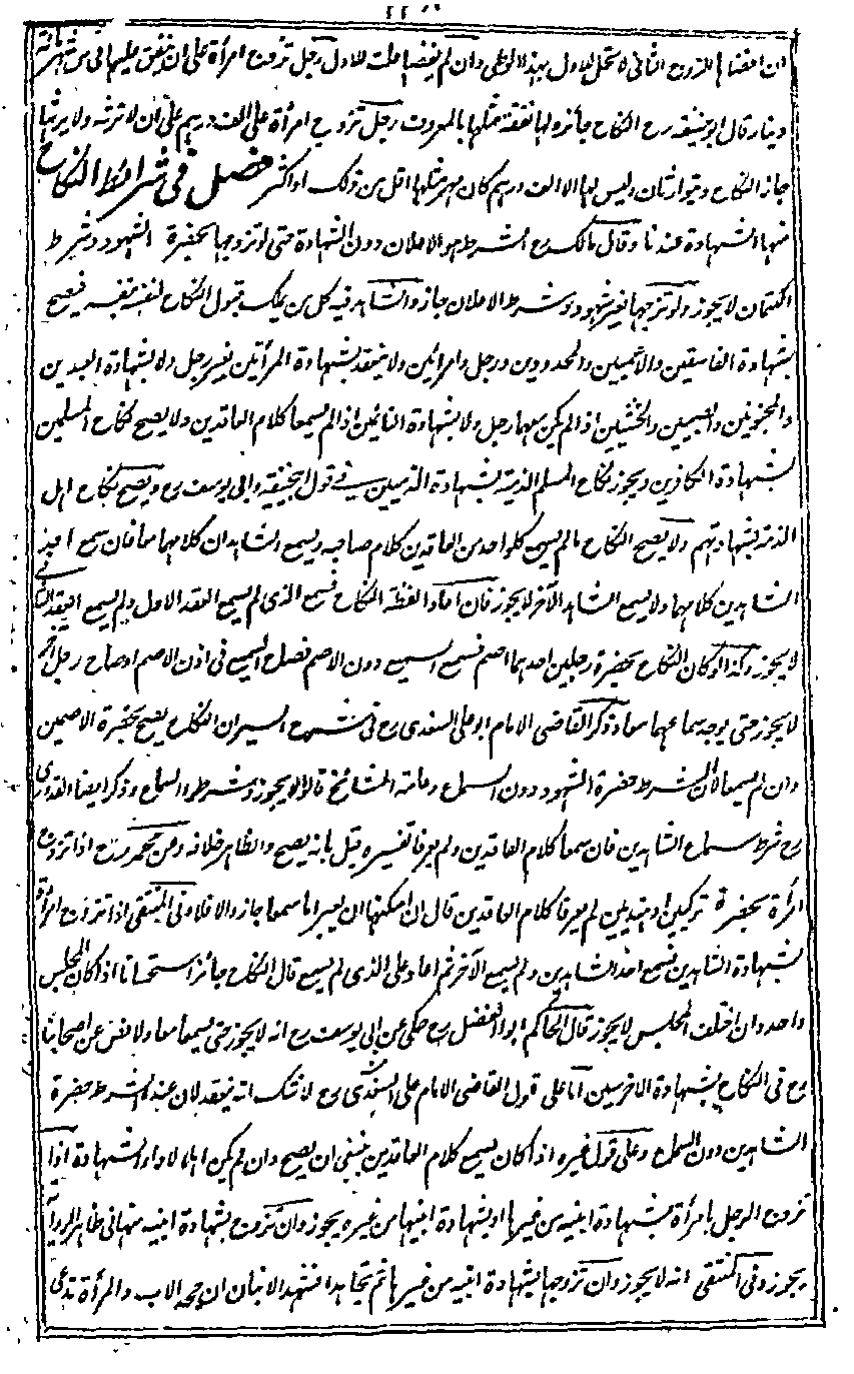 ان افضاها الزوج الثانى لا تحل للاول بهذا الوطى وان لم يفضها حلت للاول رجل تزوج امرأة على ان ينفق عليها فى كل شهر مائة
دينار قال ابو حنيفة رح النكاح جائز ولها نفقة مثلها بالمعروف رجل تزوج امرأة على الف درهم على ان لا ترثه ولا يرثها
جاز النكاح ويتوارثان وليس لها الا الف درهم كان مهر مثلها اقل من ذلك او اكثر فصل فى شرائط النكاح
منها الشهادة عندنا وقال مالك رح الشرط هو الاعلان دون الشهادة حتى لو تزوجها بحضرة الشهود وشرط
الكتمان لا يجوز ولو تزوجها بغير شهود وشرط الاعلان جاز والشاهد فيه كل من يملك قبول النكاح لنفسه بنفسه فيصح
بشهادة الفاسقين والاعميين والمحدودين ورجل وامرأتين ولا ينعقد بشهادة المرأتين بغير رجل ولا بشهادة العبدين
والمجنونين والصبيين والخنثيين اذا لم يكن معهما رجل ولا بشهادة النائمين اذا لم يسمعا كلام العاقدين ولا يصح نكاح المسلمين
بشهادة الكافرين ويجوز نكاح المسلم الذمية بشهادة الذميين فى قول ابيحنيفة وابى يوسف رح ويصح نكاح اهل
الذمة بشهادتهم ولا يصح النكاح ما لم يسمع كل واحد من العاقدين كلام صاحبه ويسمع الشاهدان كلامهما معا فان سمع احد
الشاهدين كلامهما ولا يسمع الشاهد الآخر لا يجوز فان اعاد لفظة النكاح فسمع الذى لم يسمع العقد الاول ولم يسمع العقد الثانى
لا يجوز وكذا لو كان النكاح بحضرة رجلين احدهما اصم فسمع السميع دون الاصم فصاح السميع فى اذن الاصم او صاح رجل آخر
لا يجوز حتى يوجد سماعهما معا وذكر القاضى الامام ابو على السغدى رح فى شرح السير ان النكاح يصح بحضرة الاصمين
وان لم يسمعا لان الشرط حضرة الشهود دون السماع وعامة المشائخ قالوا لا يجوز وشرطوا السماع وذكر ايضا القدورى
رح شرط سماع الشاهدين فان سمعا كلام العاقدين ولم يعرفا تفسيره قيل بانه يصح والظاهر خلافه وعن محمد رح اذا تزوج
امرأة بحضرة تركيين او هنديين لم يعرفا كلام العاقدين قال ان امكنهما ان يعبرا ما سمعا جاز والا فلا وفى المنتقى اذا تزوج امرأة
بشهادة الشاهدين فسمع احد الشاهدين ولم يسمع الآخر ثم اعاد على الذى لم يسمع قال النكاح جائز استحسانا اذا كان المجلس
واحدا وان اختلف المجلس لا يجوز قال الحاكم ابو الفضل رح حكى عن ابى يوسف رح انه لا يجوز حتى يسمعا معا ولا نص عن اصحابنا
رح فى النكاح بشهادة الاخرسين اما على قول القاضى الامام على السغدى رح لا شك انه ينعقد لان عنده الشرط حضرة
الشاهدين دون السماع وعلى قول غيره اذا كان يسمع كلام العاقدين ينبغى ان يصح وان لم يكن اهلا لاداء الشهادة اذا
تزوج الرجل بامرأة بشهادة ابنيه من غيرها او بشهادة ابنيها من غيره يجوز وان تزوج بشهادة ابنيه منها فى ظاهر الرواية
يجوز وفى المنتقى انه لا يجوز وان تزوجها بشهادة ابنيه من غيرها ثم تجاحدا فشهد الابنان ان جحد الاب والمرأة تدعى